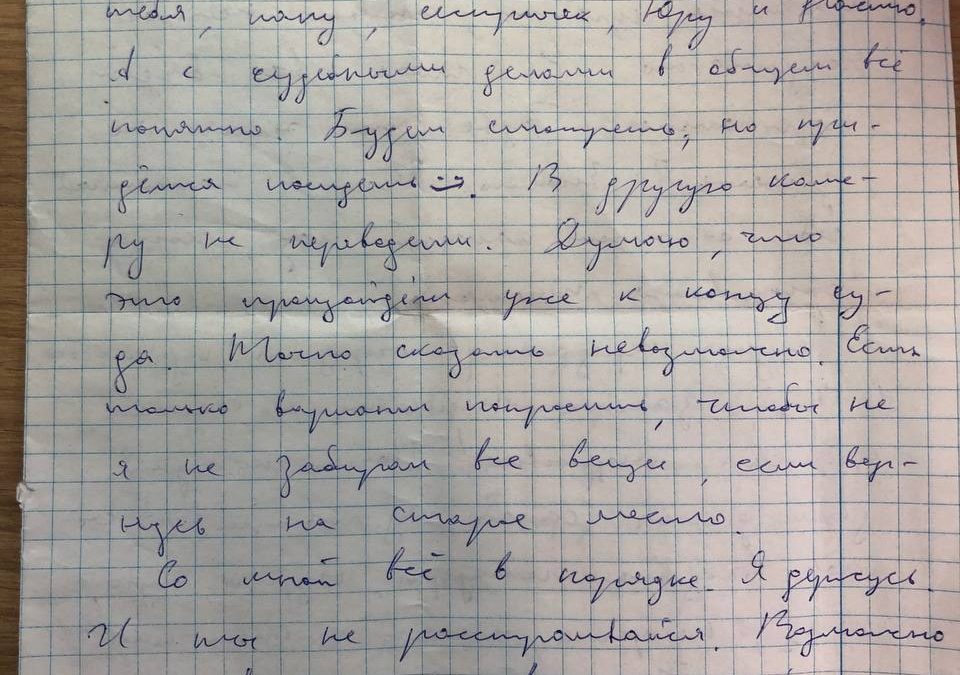 тебя, папу, сестричек, Юру и Настю.
А с судебными делами в общем всё
понятно. Будем смотреть, но при-
дётся посидеть :). В другую каме-
ру не переведени. Думаю, что
это произойдёт уже к концу су-
да. Точно сказать невозможно. Есть
только вариант попросить, чтобы не
я не забирал все вещи, если вер-
нусь на старое место.
Со мной всё в порядке. Я держусь.
И ты не расстраивайся. Возможно